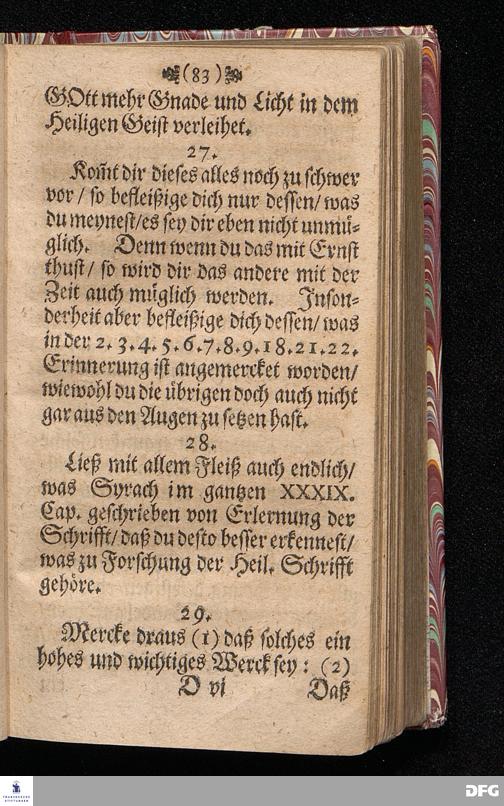 (83)
GOtt mehr Gnade und Licht in dem
Heiligen Geist verleihet.
27.
Kom̃t dir dieses alles noch zu schwer
vor / so befleißige dich nur dessen / was
du meynest / es sey dir eben nicht unmü-
glich. Denn wenn du das mit Ernst
thust / so wird dir das andere mit der
Zeit auch müglich werden. Inson-
derheit aber befleißige dich dessen / was
in der 2. 3. 4. 5. 6. 7. 8. 9. 18. 21. 22.
Erinnerung ist angemercket worden /
wiewohl du die übrigen doch auch nicht
gar aus den Augen zu setzen hast.
28.
Ließ mit allem Fleiß auch endlich /
was Syrach im gantzen XXXIX.
Cap. geschrieben von Erlernung der
Schrifft / daß du desto besser erkennest /
was zu Forschung der Heil. Schrifft
gehöre.
29.
Mercke draus (1) daß solches ein
hohes und wichtiges Werck sey : (2)
D vi Daß
FRANCKESCHE
STIFTUNGEN
DFG